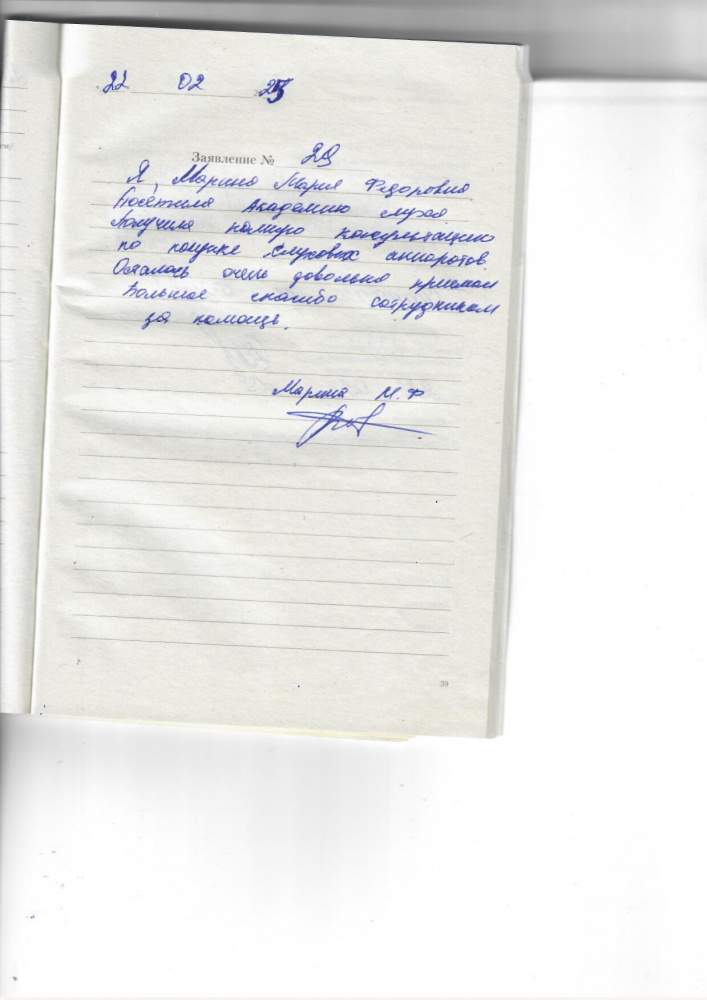 22 02 25
Заявление № 29
Я, Марина Мария Федоровна
Посетила Академию слуха.
Получила полную консультацию
по покупке слуховых аппаротов.
Осталось очень довольна приемом
Большое спасибо сотрудникам
за помощь.
Марина М.Ф
39